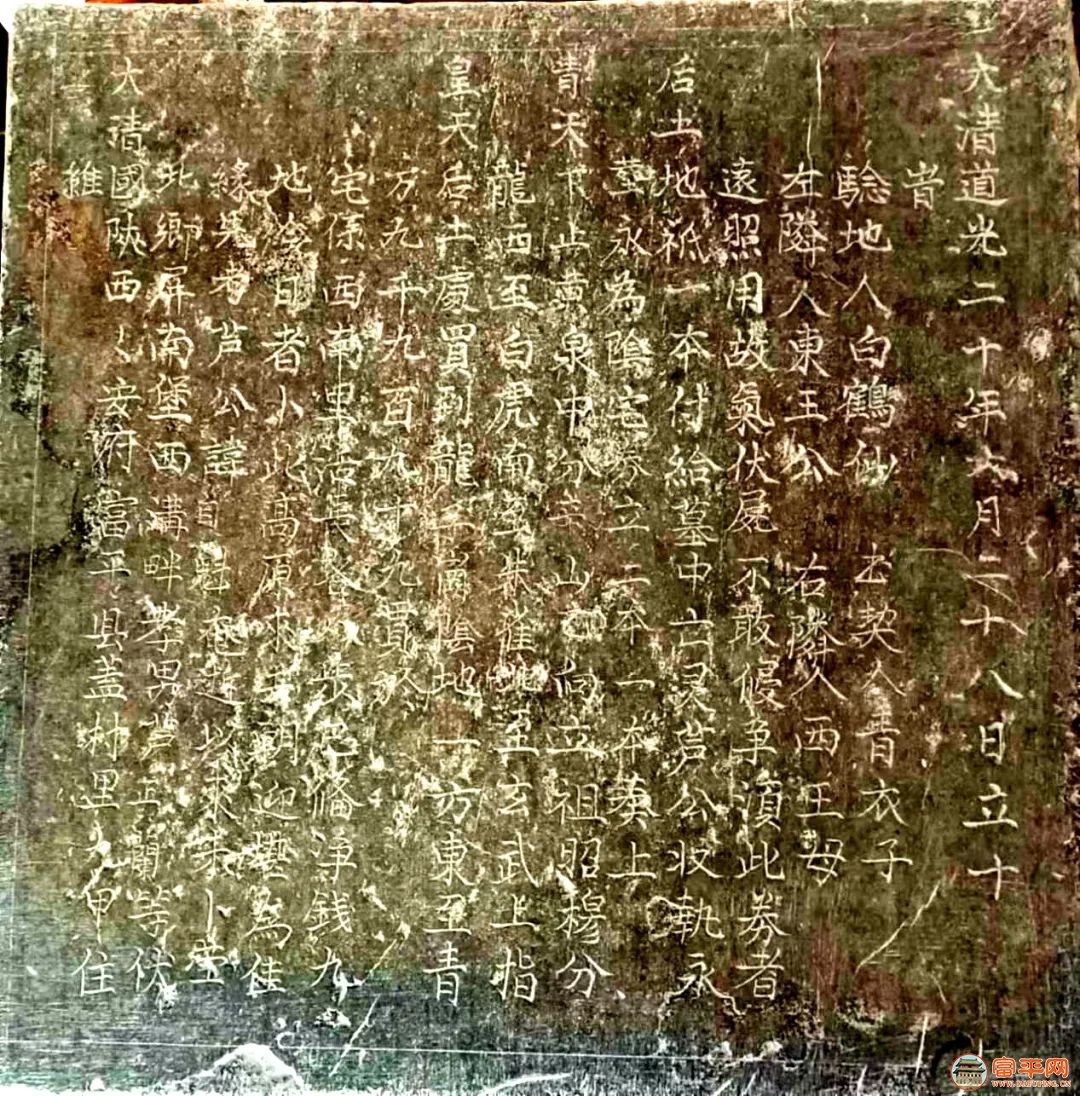 維
大清國陕西〻安府富平县盖村里九甲住
北鄉屏南堡西溝畔孝男芦正蘭等伏
緣先考芦公諱自魁奄逝以來未卜塋
地今日者卜此高原來去朝迎壟為佳
宅係西南里活長 步已備净錢九
万九千九百九十九貫
皇天后土處買到龍子崗陰地一方東至青
龍西至白虎南至朱雀北至玄武上指
青天下止黄泉中分安山 向立祖昭穆分
塟永為陰宅券立二本一本奠上
后土地祇一本付給墓中亡灵芦公收執永
遠照用故氣伏屍不敢侵争湏此券者
左隣人東王公 右隣人西王母
驗地人白鶴仙 書契人青衣子
旹
大清道光二十年六月二十八日立十
富平网
WWW.BAFUPING.CN